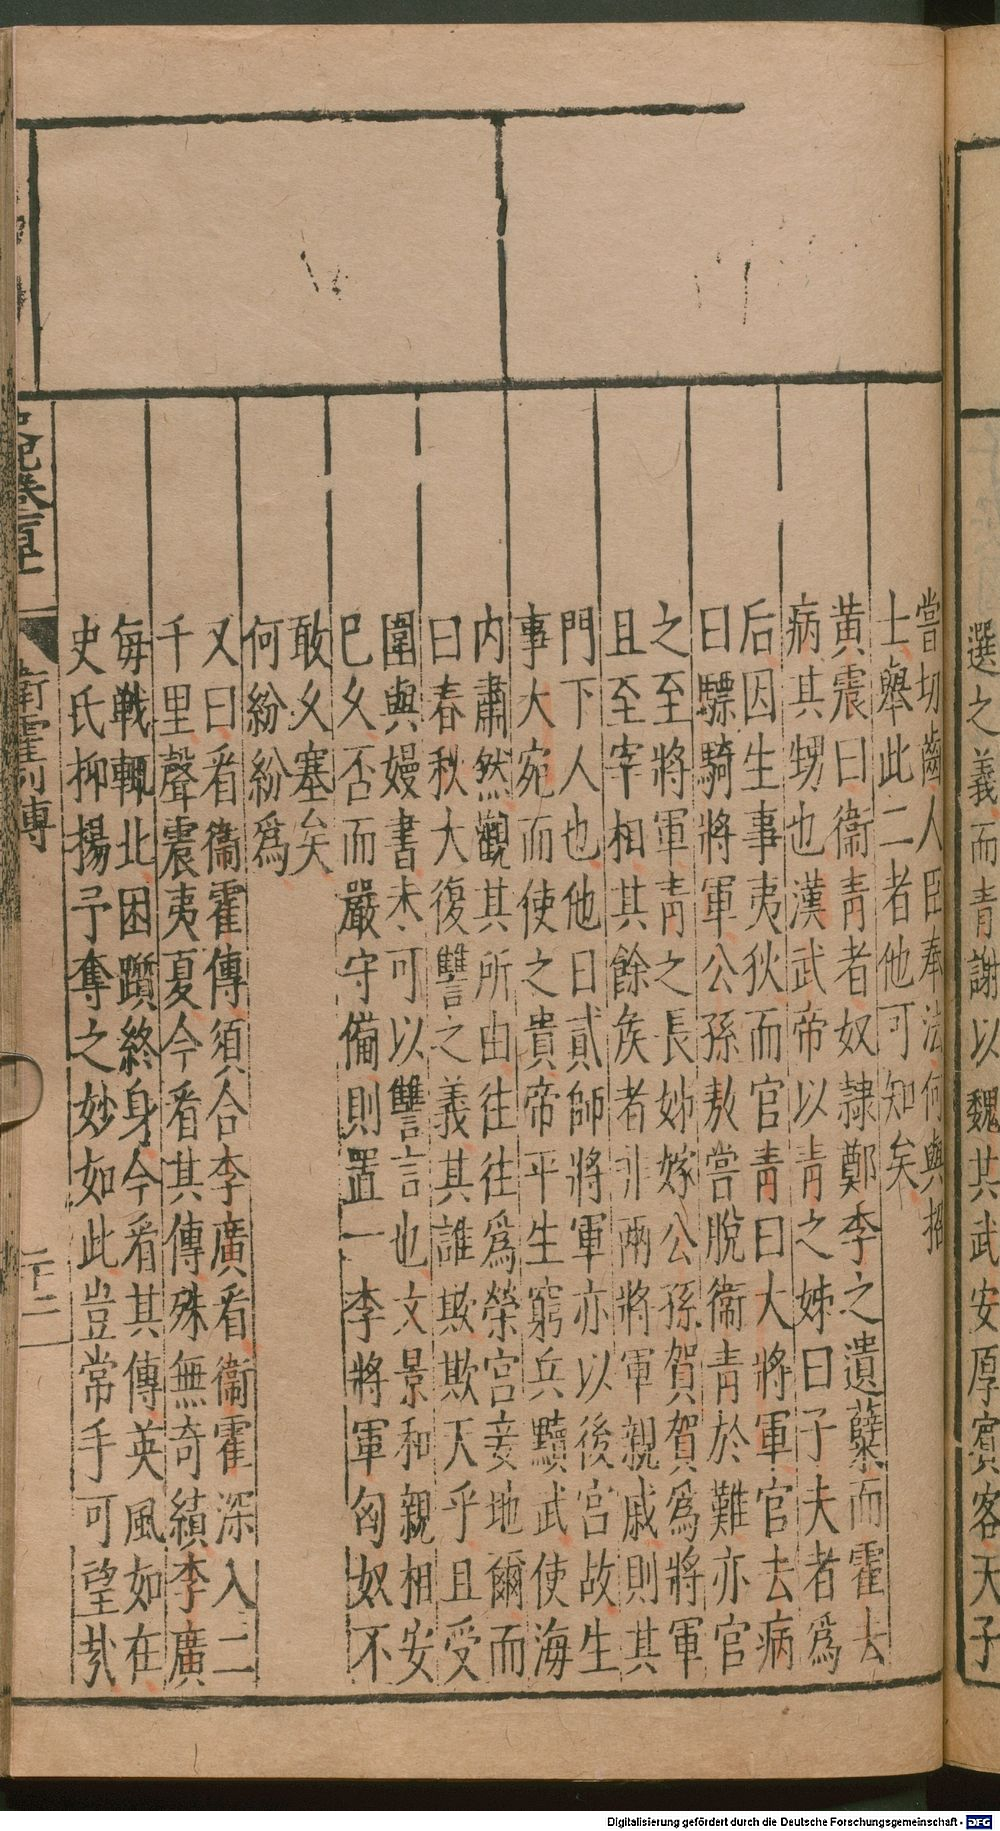 選之義而青謝以魏其武安厚賓客天子
嘗切齒人臣奉法何與招
士舉此二者他可知矣
黃震曰衞青者奴隷鄭李之遺孽而霍去
病其甥也漢武帝以青之姊曰子夫者爲
后因生事夷狄而官青曰大將軍官去病
曰驃騎將軍公孫敖嘗脫衞青於難亦官
之至將軍青之長姊嫁公孫賀賀爲將軍
且至宰相其餘矦者非兩將軍親戚則其
門下人也他日貳師將軍亦以後宮故生
事大宛而使之貴帝平生窮兵黷武使海
内肅然觀其所由往往爲榮宮妾地爾而
曰春秋大復讐之義其誰欺欺天乎且受
圍與嫚書未可以讐言也文景和親相安
巳乆否而嚴守備則置一李將軍匈奴不
敢乆塞矣
何紛紛爲
又曰看衞霍傳須合李廣看衞霍深入二
千里聲震夷夏今看其傳殊無奇績李廣
每戰輒北困躓終身今看其傳英風如在
史氏抑揚予奪之妙如此豈常手可望哉
衞霍列傳
二十二
Digitalisierung gefördert durch die Deutsche Forschungsgemeinschaft - DFG